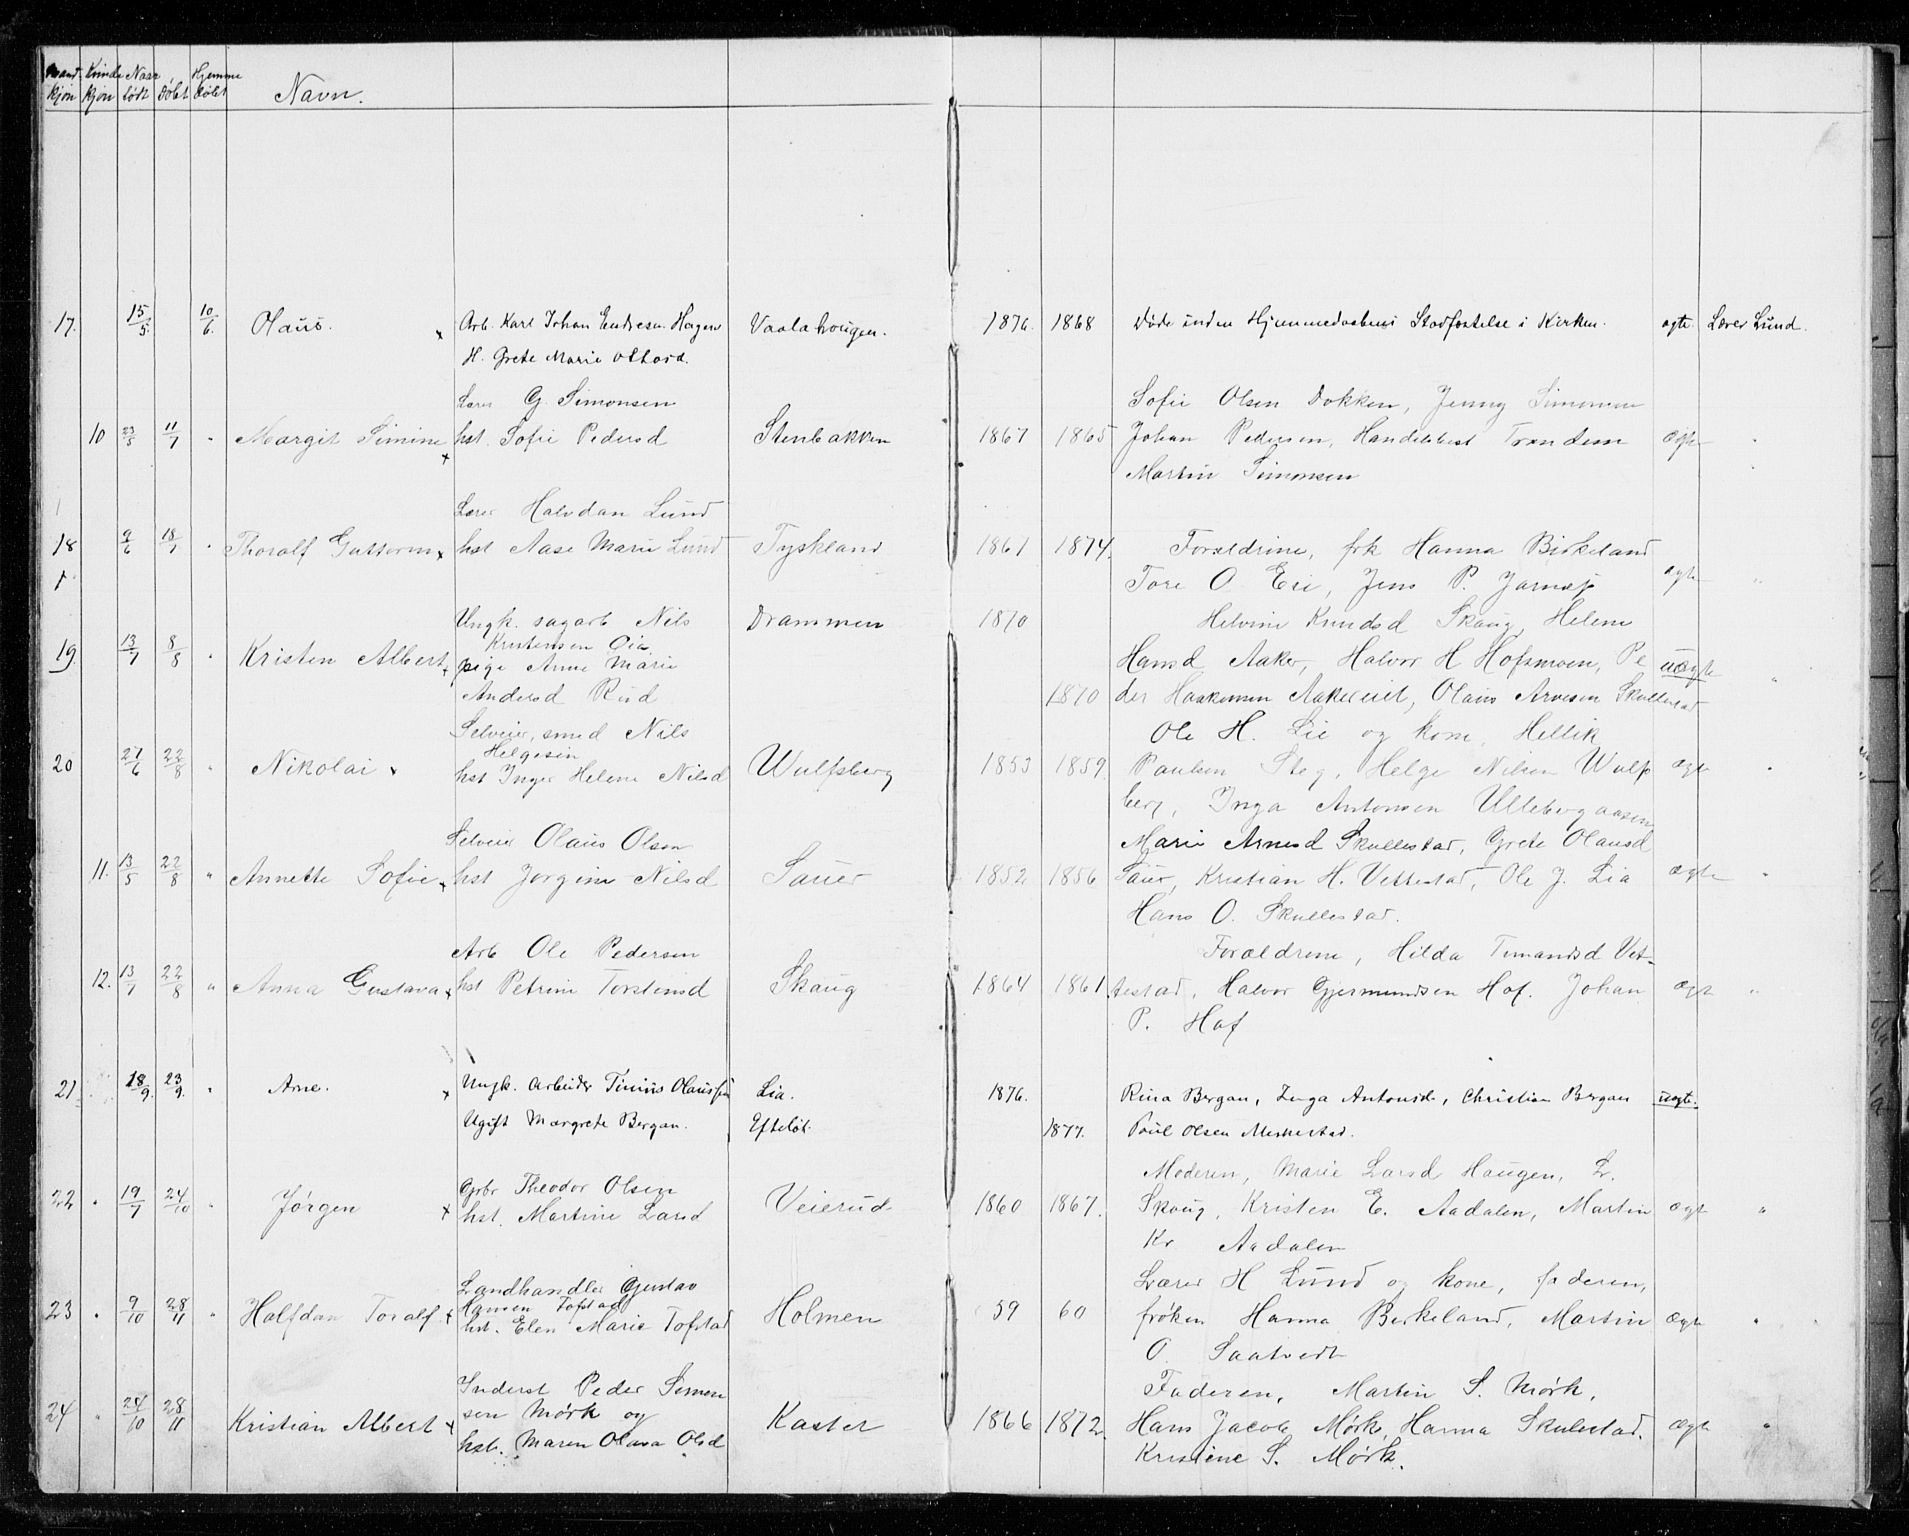 Mand- Kvinde Naar Hjemme
kjøn kjøn født Døbt døbt Navn.
17. 15/5 10/6 Olaus. x Arb. Karl Johan Hagen Vaalahougen. 1876. 1868 Døde inden Hjemmedaabens Stadfæstelse i Kirken. ægte. Lærer Lund.
H. Grete Marie
Lærer G. Simonsen Sofie Olsen Dokken, Jenny Simonsen
10 23/5 11/7 " Margit Simine x hst. Sofie Pedersd Stenbakken 1867 1865 Johan Pedersen, Handelsbest Trondsen ægte "
Martin Simonsen
Lærer Halvdan Lund
18 9/6 18/7 " Thoralf Guttorm x hst Aase Marie Lund Tyskland 1867 1874. Forældrene, frk Hanna Birkeland
Tore O. Eri, Jens P. ægte "
Ungk. sagarb Nils Drammen 1870 Helvine Knudsd Skaug, Helene
19 13/7 8/8 " Kristen Albert x Kristensen Hansd Aaker, Halvor H Hofsmoen, Pe uægte "
pige Anne Marie
Andersd Rud 1870 der Haakensen Aakereiet, Olaus Arnesen Skullestad
Selveier, smed Nils Ole H. Lie og kone, Hellik
20 27/6 22/8 " Nikolai x Helgesen Wulfsberg 1853 1859 Paulsen Steg, Helge Nilsen Wulfs ægte "
hst Inger Helene Nilsd
berg, Inga Antonsen Ullebergaasen
Selveier Olaus Olsen Marie Arnesd Skullestad, Grete Olausd
11. 13/5 22/8 " Annette Sofie x hst Jorgine Nilsd Sauer 1852 1856 Sauer, Kristian H. Vettestad, Ole J. Lia ægte "
Hans O. Skullestad.
Arb Ole Pedersen Forældrene, Hilda Timandsd Vet-
12. 13/7 22/8 " Anna Gustava x hst Petrine Torstensd Skaug 1864 1861. testad, Halvor Gjermundsen Hof. Johan ægte "
P. Hof
21 18/9. 23/9. " Arne. x Ungk. Arbeider Tinius Olaussen Lia. 1876. Rina Bergan, Inga Antonsd., Christian Bergan uægte.
Ugift Margrete Bergan. Efteløt. 1877. Poul Olsen
Moderen, Marie Larsd Haugen, L.
22 " 19/7 24/10 " Jørgen x Gbr Theodor Olsen Veierud 1860 1867. Skaug, Kristen E. Aadalen, Martin ægte "
hst. Martine Larsd
Kr Aadalen
Landhandler Gustav Lærer H Lund og kone, faderen,
23 " 9/10 28/11 " Halfdan Toralf x Hansen Tofstad Holmen 59 60 frøken Hanna Birkeland, Martin ægte "
hst. Elen Marie Tofstad
O. Saatvedt
Inderst Peder Simen Faderen, Martin S. Mørk,
24 " 24/10 28/11 Kristian Albert x sen Mørk og Kaster 1866 1872. Hans Jacob Mørk, Hanna Skulestad. ægte "
hst. Maren Olava Olsd Kristine S. Mørk.